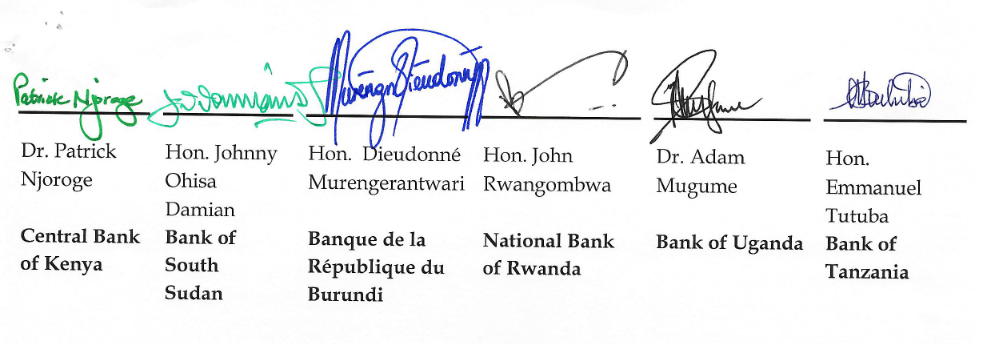 Patrick Njoroge
Dr. Patrick
Njoroge
Central Bank
of Kenya
Hon. Johnny
Ohisa
Damian
Bank of
South
Sudan
Hon. Dieudonné
Murengerantwari
Banque de la
République du
Burundi
Hon. John
Rwangombwa
National Bank
of Rwanda
Dr. Adam
Mugume
Bank of Uganda
Hon.
Emmanuel
Tutuba
Bank of
Tanzania